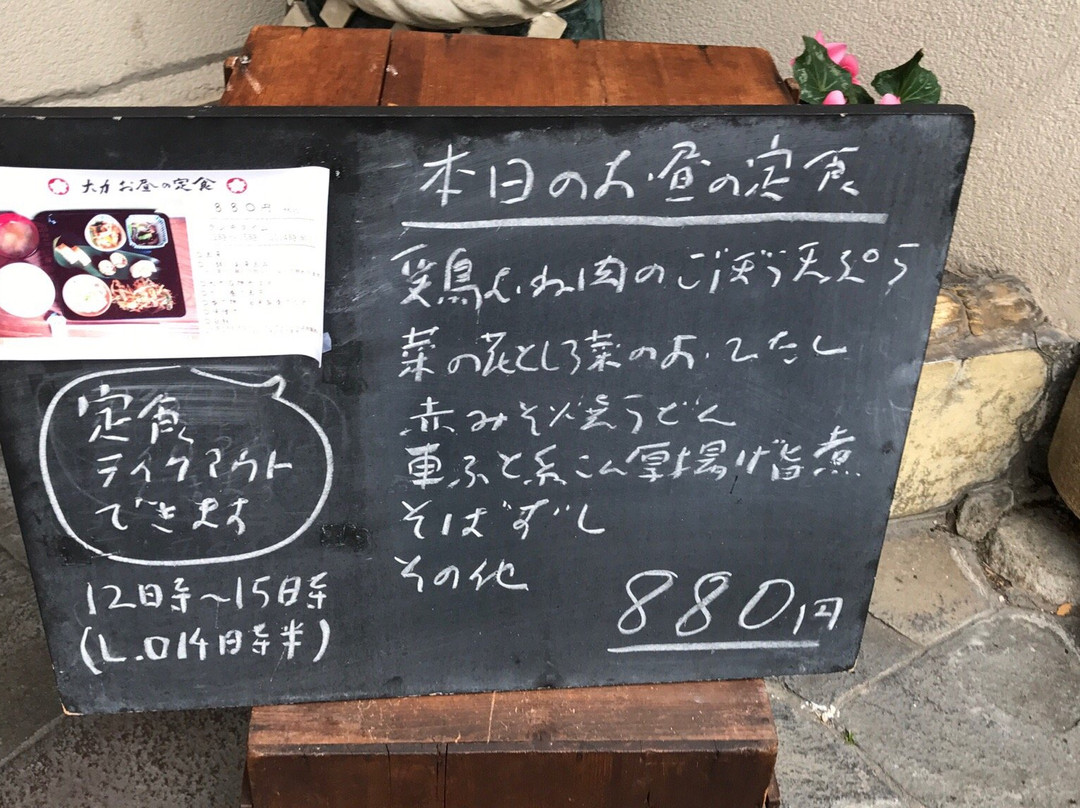 大力 お昼の定食
880円
定食
テイクアウト
できます
12時~15時
(L.O14時半)
本日のお昼の定食
鶏むね肉のごぼう天ぷら
菜の花としろ菜のおひたし
赤みそ焼うどん
車ふと糸こん厚揚げ旨煮
そばずし
その他
880円